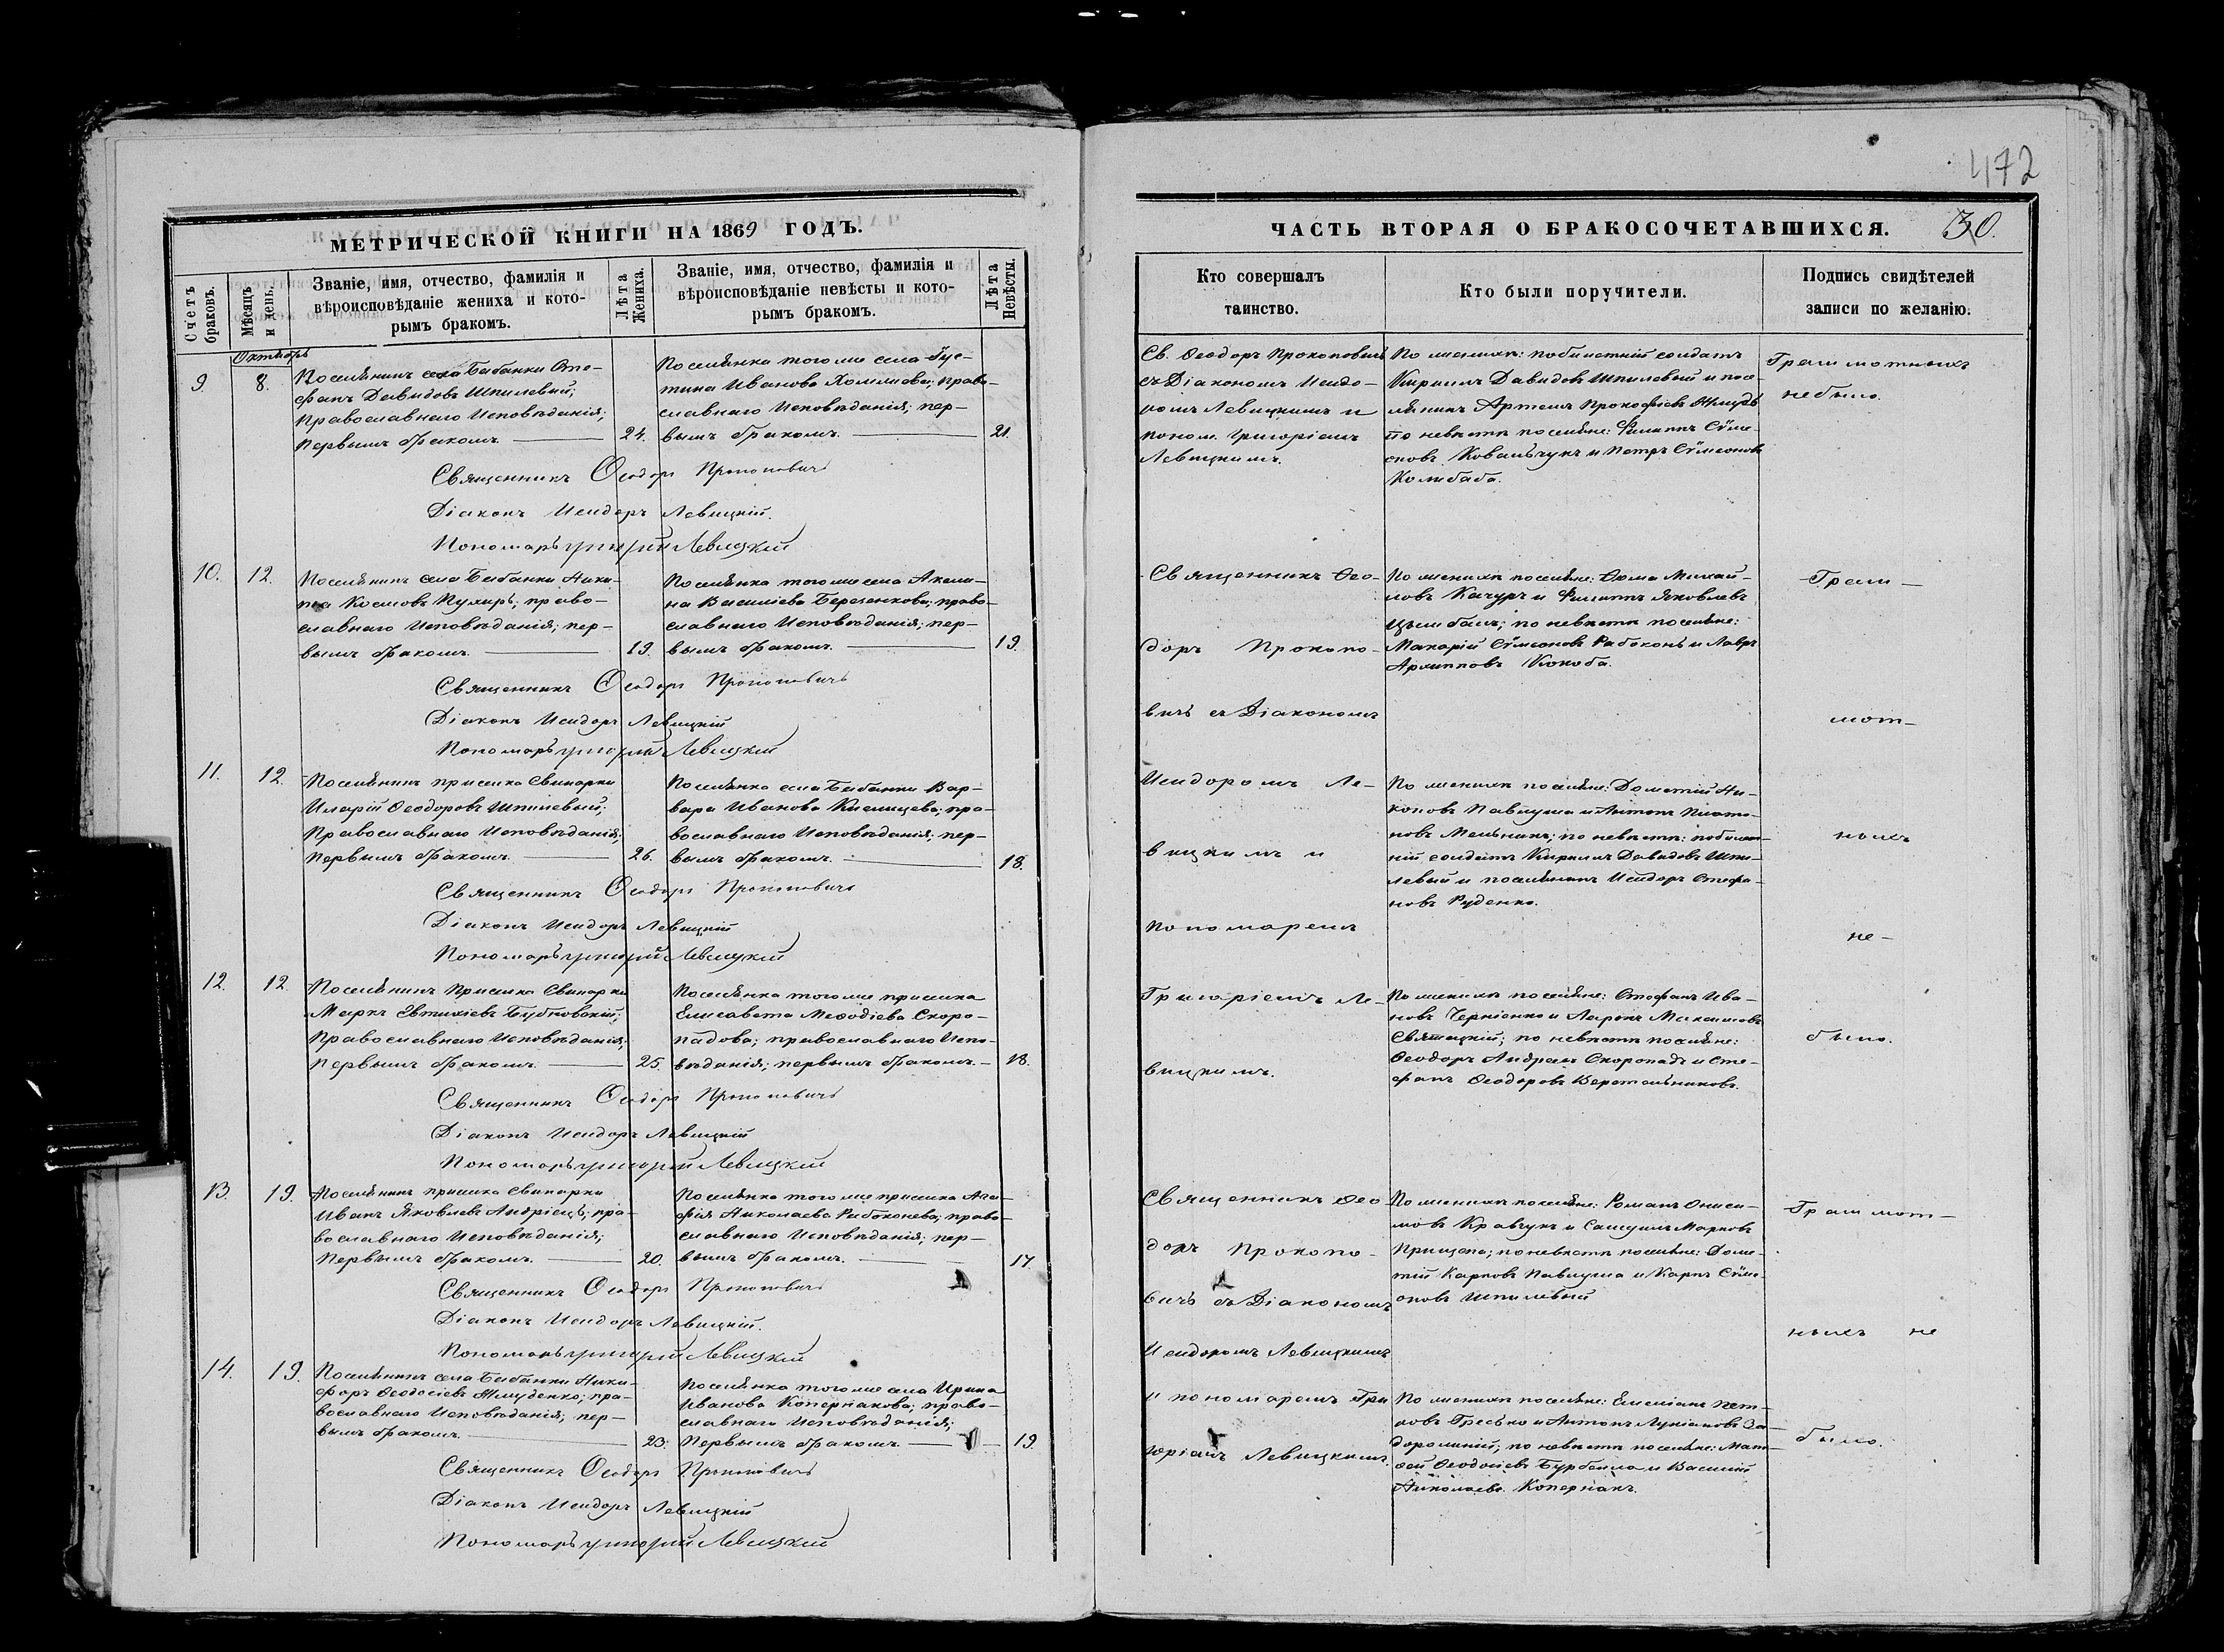 МЕТРИЧЕСКОЙ КНИГИ НА 1869 ГОДЪ.
Счетъ браковъ.
Мѣсяцъ и день.
Званіе, имя, отчество, фамилія и
вѣроисповѣданіе жениха и кото-
рымъ бракомъ.
Лѣта Жениха.
Званіе, имя, отчество, фамилія и
вѣроисповѣданіе невѣсты и кото-
рымъ бракомъ.
Лѣта Невѣсты.
Октябрь
9. 8.
Поселянинъ села Бабанки Сте-
фанъ Давидовъ Шпилевый;
Православнаго Исповѣданія;
Первымъ бракомъ. 24.
Поселянка того же села Іус-
тина Иванова; право-
славнаго Исповѣданія; пер-
вымъ бракомъ. 21.
Священникъ Ѳеодоръ Прокоповичъ
Діаконъ Исидоръ Левицкій.
Пономарь Григорій Левицкій
10. 12.
Поселянинъ села Бабанки Ники-
та Космовъ Пухирь; право-
славнаго Исповѣданія; пер-
вымъ бракомъ. 19.
Поселянка того же села Акели-
на Василіева Березенкова; право-
славнаго Исповѣданія; пер-
вымъ бракомъ. 19.
Священникъ Ѳеодоръ Прокоповичъ
Діаконъ Исидоръ Левицкій
Пономарь Григорій Левицкій
11. 12.
Поселянинъ присілка Свинарки
Иларій Ѳеодоровъ Шпилевый;
Православнаго Исповѣданія;
Первымъ бракомъ. 26.
Поселянка села Бабанки Вар-
вара Иванова Кислицева; пра-
вославнаго Исповѣданія; пер-
вымъ бракомъ. 18.
Священникъ Ѳеодоръ Прокоповичъ
Діаконъ Исидоръ Левицкій
Пономарь Григорій Левицкій
12. 12.
Поселянинъ приселка Свинарки
Маркъ Евтихіевъ Бубновскій;
Православнаго Исповѣданія;
Первымъ бракомъ. 25.
Поселянка того же приселка
Елисавета Меѳодіева Скоро-
падова; православнаго Испо-
вѣданія; первымъ бракомъ. 18.
Священникъ Ѳеодоръ Прокоповичъ
Діаконъ Исидоръ Левицкій
Пономарь Григорій Левицкій
13. 19.
Поселянинъ приселка Свинарки
Иванъ Яковлевъ Андріецъ; пра-
вославнаго Исповѣданія;
Первымъ бракомъ. 20.
Поселянка того же приселка Ага-
фія Николаева Рабоконева; право-
славнаго Исповѣданія; пер-
вымъ бракомъ. 17.
Священникъ Ѳеодоръ Прокоповичъ
Діаконъ Исидоръ Левицкій.
Пономарь Григорій Левицкій
14. 19.
Поселянинъ села Бабанки Ники-
форъ Ѳеодосіевъ Жмуденко; пра-
вославнаго Исповѣданія; пер-
вымъ бракомъ. 23.
Поселянка того же села Ирина
Иванова Коперкакова; право-
славнаго Исповѣданія;
Первымъ бракомъ. 19.
Священникъ Ѳеодоръ Прокоповичъ
Діаконъ Исидоръ Левицкій
Пономарь Григорій Левицкій
472
ЧАСТЬ ВТОРАЯ О БРАКОСОЧЕТАВШИХСЯ. 30.
Кто совершалъ
таинство.
Кто были поручители.
Подпись свидѣтелей
записи по желанію.
Св. Ѳеодоръ Прокоповичъ
съ Діакономъ Исидо-
ромъ Левицкимъ и
поном. Григоріемъ
Левицкимъ.
По женихѣ: побилетній солдатъ
Кириллъ Давидовъ Шпилевый и посе-
лянинъ Артемъ Прокофіевъ
По невѣстѣ поселяне: Филиппъ Сѵме-
оновъ Ковальчукъ и Петръ Сѵмеоновъ
Колибаба.
Грам мотныхъ
не было.
Священникъ Ѳео-
доръ Прокопо-
вичъ съ Діакономъ
Исидоромъ Ле-
вицкимъ и
Пономаремъ
Григоріемъ Ле-
вицкимъ.
По женихѣ поселяне: Ѳома Михай-
ловъ Качуръ и Филиппъ Яковлевъ
Цымбалъ; по невѣстѣ поселяне:
Макарій Сѵмеоновъ Рабоконь и Лавръ
Архипповъ Кокоба.
По женихѣ поселяне: Дометій Ни-
коновъ Павлуша и Антонъ Плато-
новъ Мельникъ; по невѣстѣ: побилет-
ній солдатъ Кириллъ Давидовъ Шпи-
левый и поселянинъ Исидоръ Стефа-
новъ Руденко.
По женихѣ поселяне: Стефанъ Ива-
новъ Черніенко и Ларіонъ Максимовъ
Святицкій; по невѣстѣ поселяне:
Ѳеодоръ Андреевъ Скоропадъ и Сте-
фанъ Ѳеодоровъ Веретельниковъ.
Грам-
мот-
ныхъ
не-
было.
Священникъ Ѳео
доръ Прокопо-
вичъ съ Діакономъ
Исидоромъ Левицкимъ
и пономаремъ Гри
горіемъ Левицкимъ.
По женихѣ поселяне: Романъ Ониси-
мовъ Кравчукъ и Самуилъ Марковъ
Прищепа; по невѣстѣ поселяне: Доме-
тій Карповъ Павлуша и Карпъ Сѵме-
оновъ Шпилевый
По женихѣ поселяне: Емеліанъ Пет-
ровъ Гресько и Антонъ Лукіановъ За-
дорожній; по невѣстѣ поселяне: Мат-
ѳей Ѳеодосіевъ Бурбела и Василій
Николаевъ Коперкакъ.
Граммот-
ныхъ не
было.